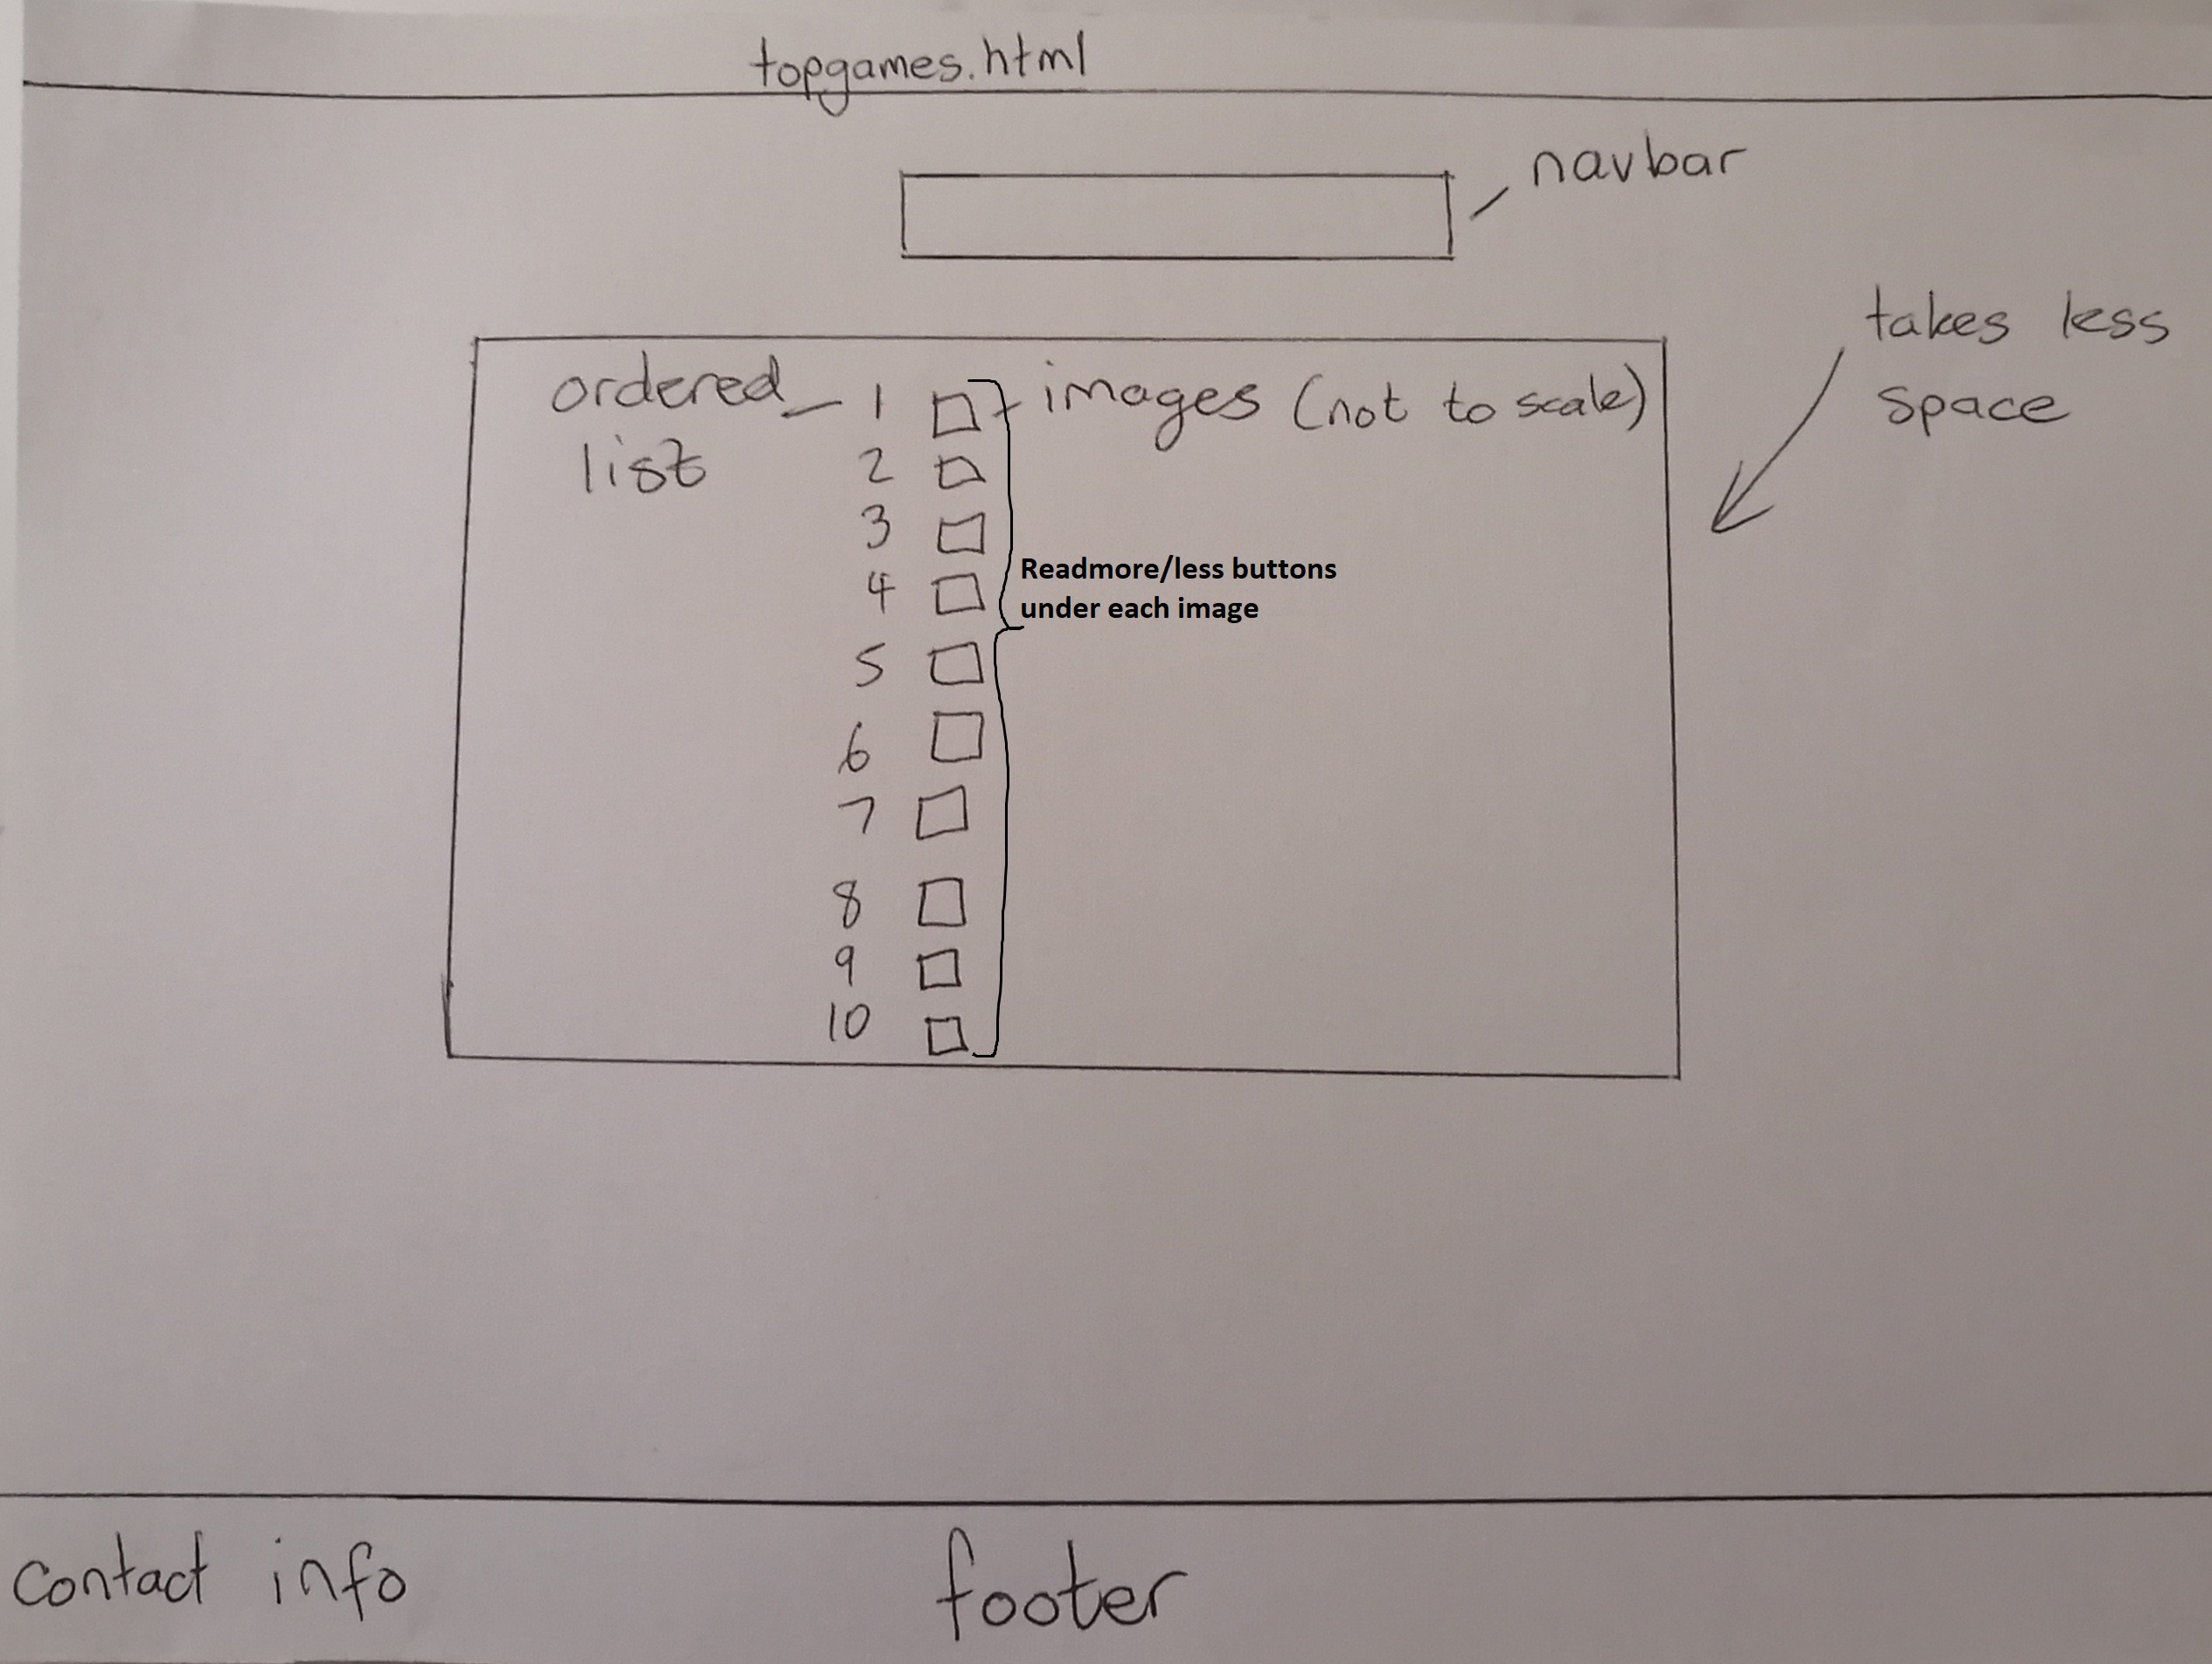 topgames.html
navbar
takes less
space
ordered
list
images (not to scale)
1
2
3
4
5
6
7
8
9
10
Readmore/less buttons
under each image
contact info
footer